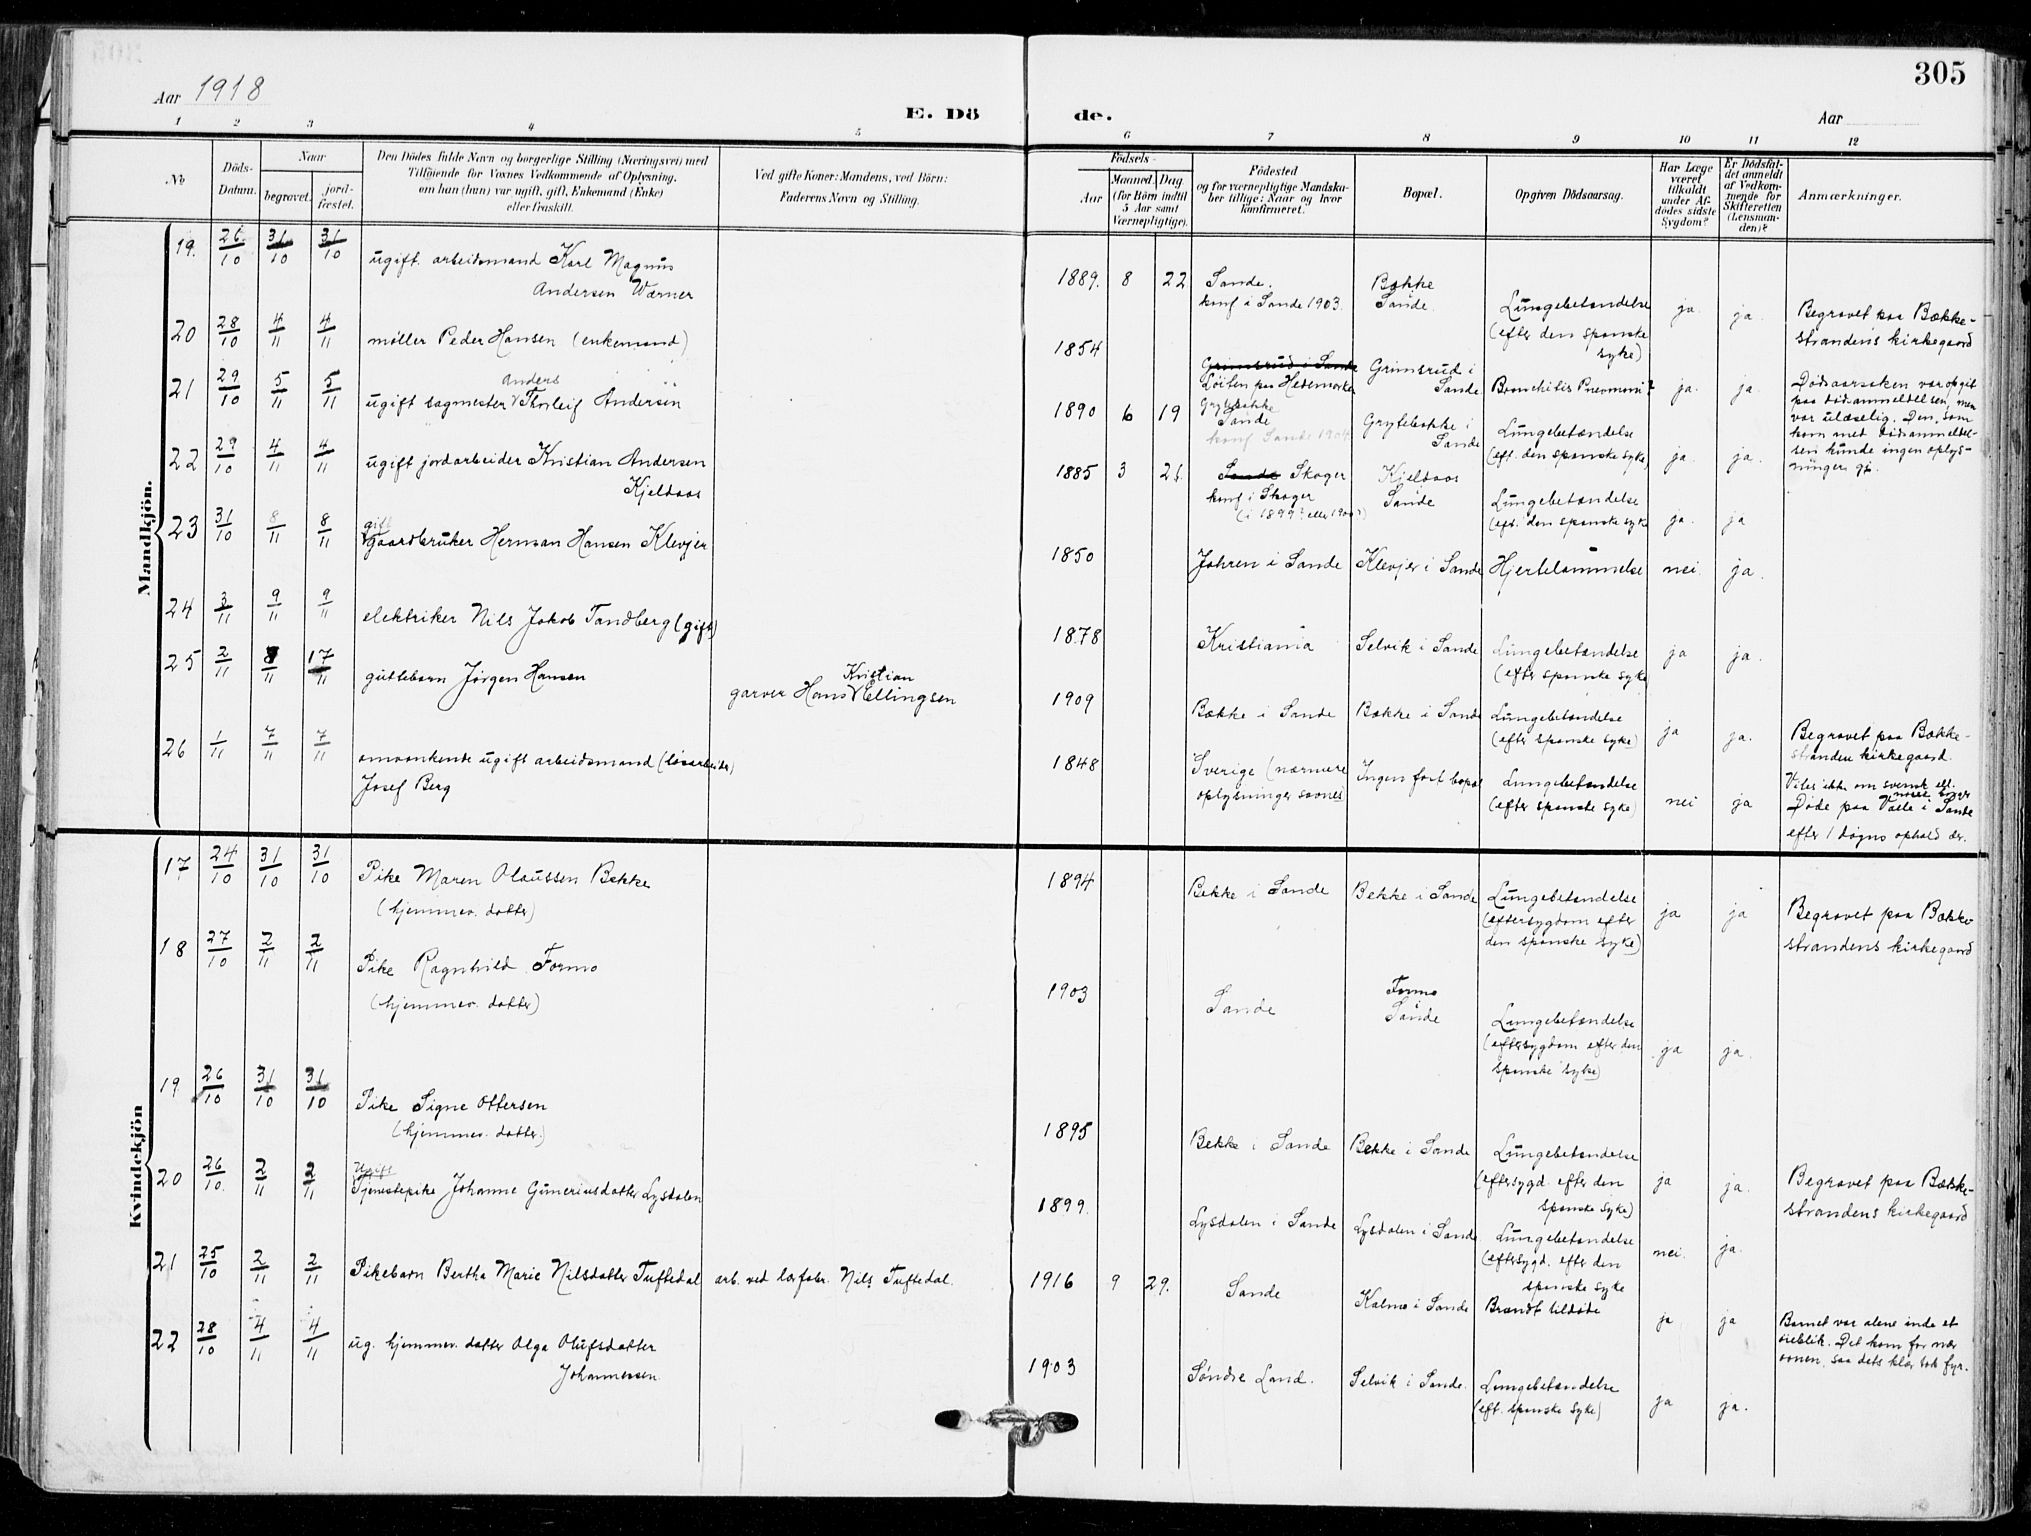 305
Aar 1918
E. Dö
de.
Aar
1 2 3 4 5 6 7 8 9 10 11 12
No
Döds-
Datum.
Naar
begravet.
jord-
fæstet.
Den Dödes fulde Navn og borgerlige Stilling (Næringsvei) med
Tilföiende for Voxnes Vedkommende af Oplysning,
om han (hun) var ugift, gift, Enkemand (Enke)
eller fraskilt.
Ved gifte Koner: Mandens, ved Börn:
Faderens Navn og Stilling.
Födsels-
Aar
Maaned.
Dag
(for Börn indtil
5 Aar samt
Værnepligtige).
Födested
og for værnepligtige Mandska-
ber tillige: Naar og hvor
konfirmeret.
Bopæl.
Opgiven Dödsaarsag.
Har Læge
været
tilkaldt
under Af-
dödes sidste
Sygdom?
Er Dödsfal-
det anmeldt
af Vedkom-
mende for
Skifteretten
(Lensman-
den)?
Anmærkninger.
Mandkjön.
19. 26/10 31/10 31/10 ugift. arbeidsmand Karl Magnus
Andersen Wærner
1889. 8 22 Sande.
konf i Sande 1903.
Bække
Sande.
Lungebetændelse
(efter den spanske
syke)
ja. ja.
Begravet paa Bække-
strandens kirkegaard
20 28/10 4/11 4/11 møller Peder Hansen (enkemand)
1854
Grimsrud i Sande
Løiten paa Hedemarken
Grimsrud i
Sande
Bronchitis Pneumoni?
ja. ja.
Dødsaarsaken var opgit
paa dødsanmeldelsen, men
var ulæselig. Den, som
kom med dødsanmeldel-
sen kunde ingen oplys-
ninger gi.
21 29/10 5/11 5/11 Anders
ugift sagmester V Thorleif Andersen
1890 6 19 Grytebække
Sande
konf Sande 1904.
Grytebække i
Sande
Lungebetændelse
(eft. den spanske syke)
ja. ja.
22 29/10 4/11 4/11 ugift jordarbeider Kristian Andersen
Kjeldaas
1885 3 Sande Skoger
konf i Skoger
(i 1899? eller 1900?)
Kjeldaas
Sande
Lungebetændelse
(eft. den spanske syke
ja. ja
23 31/10 8/11 8/11 gift
V gaardbruker Herman Hansen Klevjer
1850
Johren i Sande Klevjer i Sande Hjertelammelse nei. ja.
24 3/11 9/11 9/11 elektriker Nils Jakob Tandberg (gift)
1878
Kristiania Selvik i Sande Lungebetændelse
(efter spanske syke
ja ja.
25 2/11 8/11 17/11 guttebarn Jørgen Hansen
Kristian
garver Hans V Ellingsen
1909
Bække i Sande Bække i Sande Lungebetændelse
(efter spanske syke)
ja ja.
Begravet paa Bække-
stranden kirkegaard.
26 1/11 7/11 7/11 omvankende ugift arbeidsmand (løsarbeider)
Josef Berg
1848
Sverige (nærmere
oplysninger savnes)
Ingen fast bopæl
Lungebetændelse
(efter spanske syke)
nei ja
Vites ikke om svensk ell.
norsk borger
Døde paa Valle i Sande
efter 1 døgns ophold der.
Kvindekjön
17 24/10 31/10 31/10 Pike Maren Olaussen Bekke
(hjemmev. datter)
1894
Bekke i Sande Bekke i Sande Lungebetændelse
(eftersygdom efter
den spanske syke)
ja ja
Begravet paa Bække
strandens kirkegaard
18 27/10 2/11 2/11 Pike Ragnhild Formo
(hjemmev. datter)
1903
Sande
Formo
i
Sande
Lungebetændelse
(eftersygdom efter den
spanske syke)
ja ja.
19. 26/10 31/10 31/10 Pike Signe Ottersen
(hjemmev. datter.)
1895
Bekke i Sande Bekke i Sande Lungebetændelse
(eftersygd. efter den
spanske syke)
ja ja.
Begravet paa Bække-
strandens kirkegaard
20 26/10 2/11 2/11 Ugift
Tjenestepike Johanne Guneriusdatter Lysdalen
1899.
Lysdalen i Sande Lysdalen i Sande Lungebetændelse
(eftersygd. efter den
spanske syke
nei. ja.
21 25/10 2/11 2/11 Pikebarn Bertha Marie Nilsdatter Tuftedal arb. ved lærfabr. Nils Tuftedal.
1916 9 29. Sande
Kalmo i Sande Brændt tildøde
ja ja
Barnet var alene inde et
øieblik. Det kom for nær
ovnen, saa dets klær tok fyr.
22 28/10 4/11 4/11 ug. hjemmev. datter Olga Olufsdatter
Johannessen.
1903
Søndre Land. Selvik i Sande. Lungebetændelse
(eft. spanske syke)
ja ja.